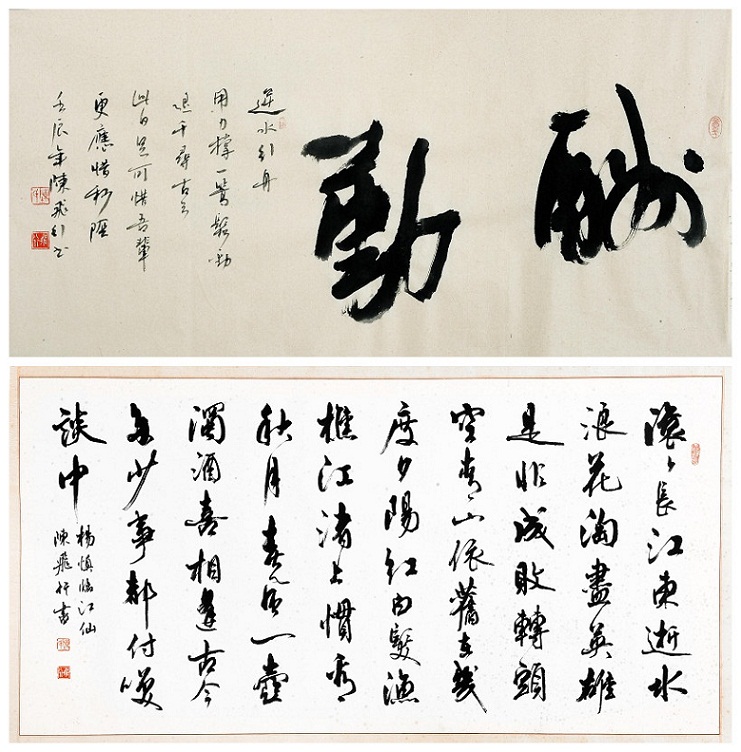 酬勤
逆水行舟
用力撐一篙鬆勁
退千尋古云
此日足可惜吾輩
更應惜秒陰
壬辰年陳飛行書
滾々長江東逝水
浪花淘盡英雄
是非成敗轉頭
空青山依舊在幾
度夕陽紅白髮漁
樵江渚上慣看
秋月春風一壺
濁酒喜相逢古今
多少事都付笑
談中
楊慎臨江仙
陳飛行書